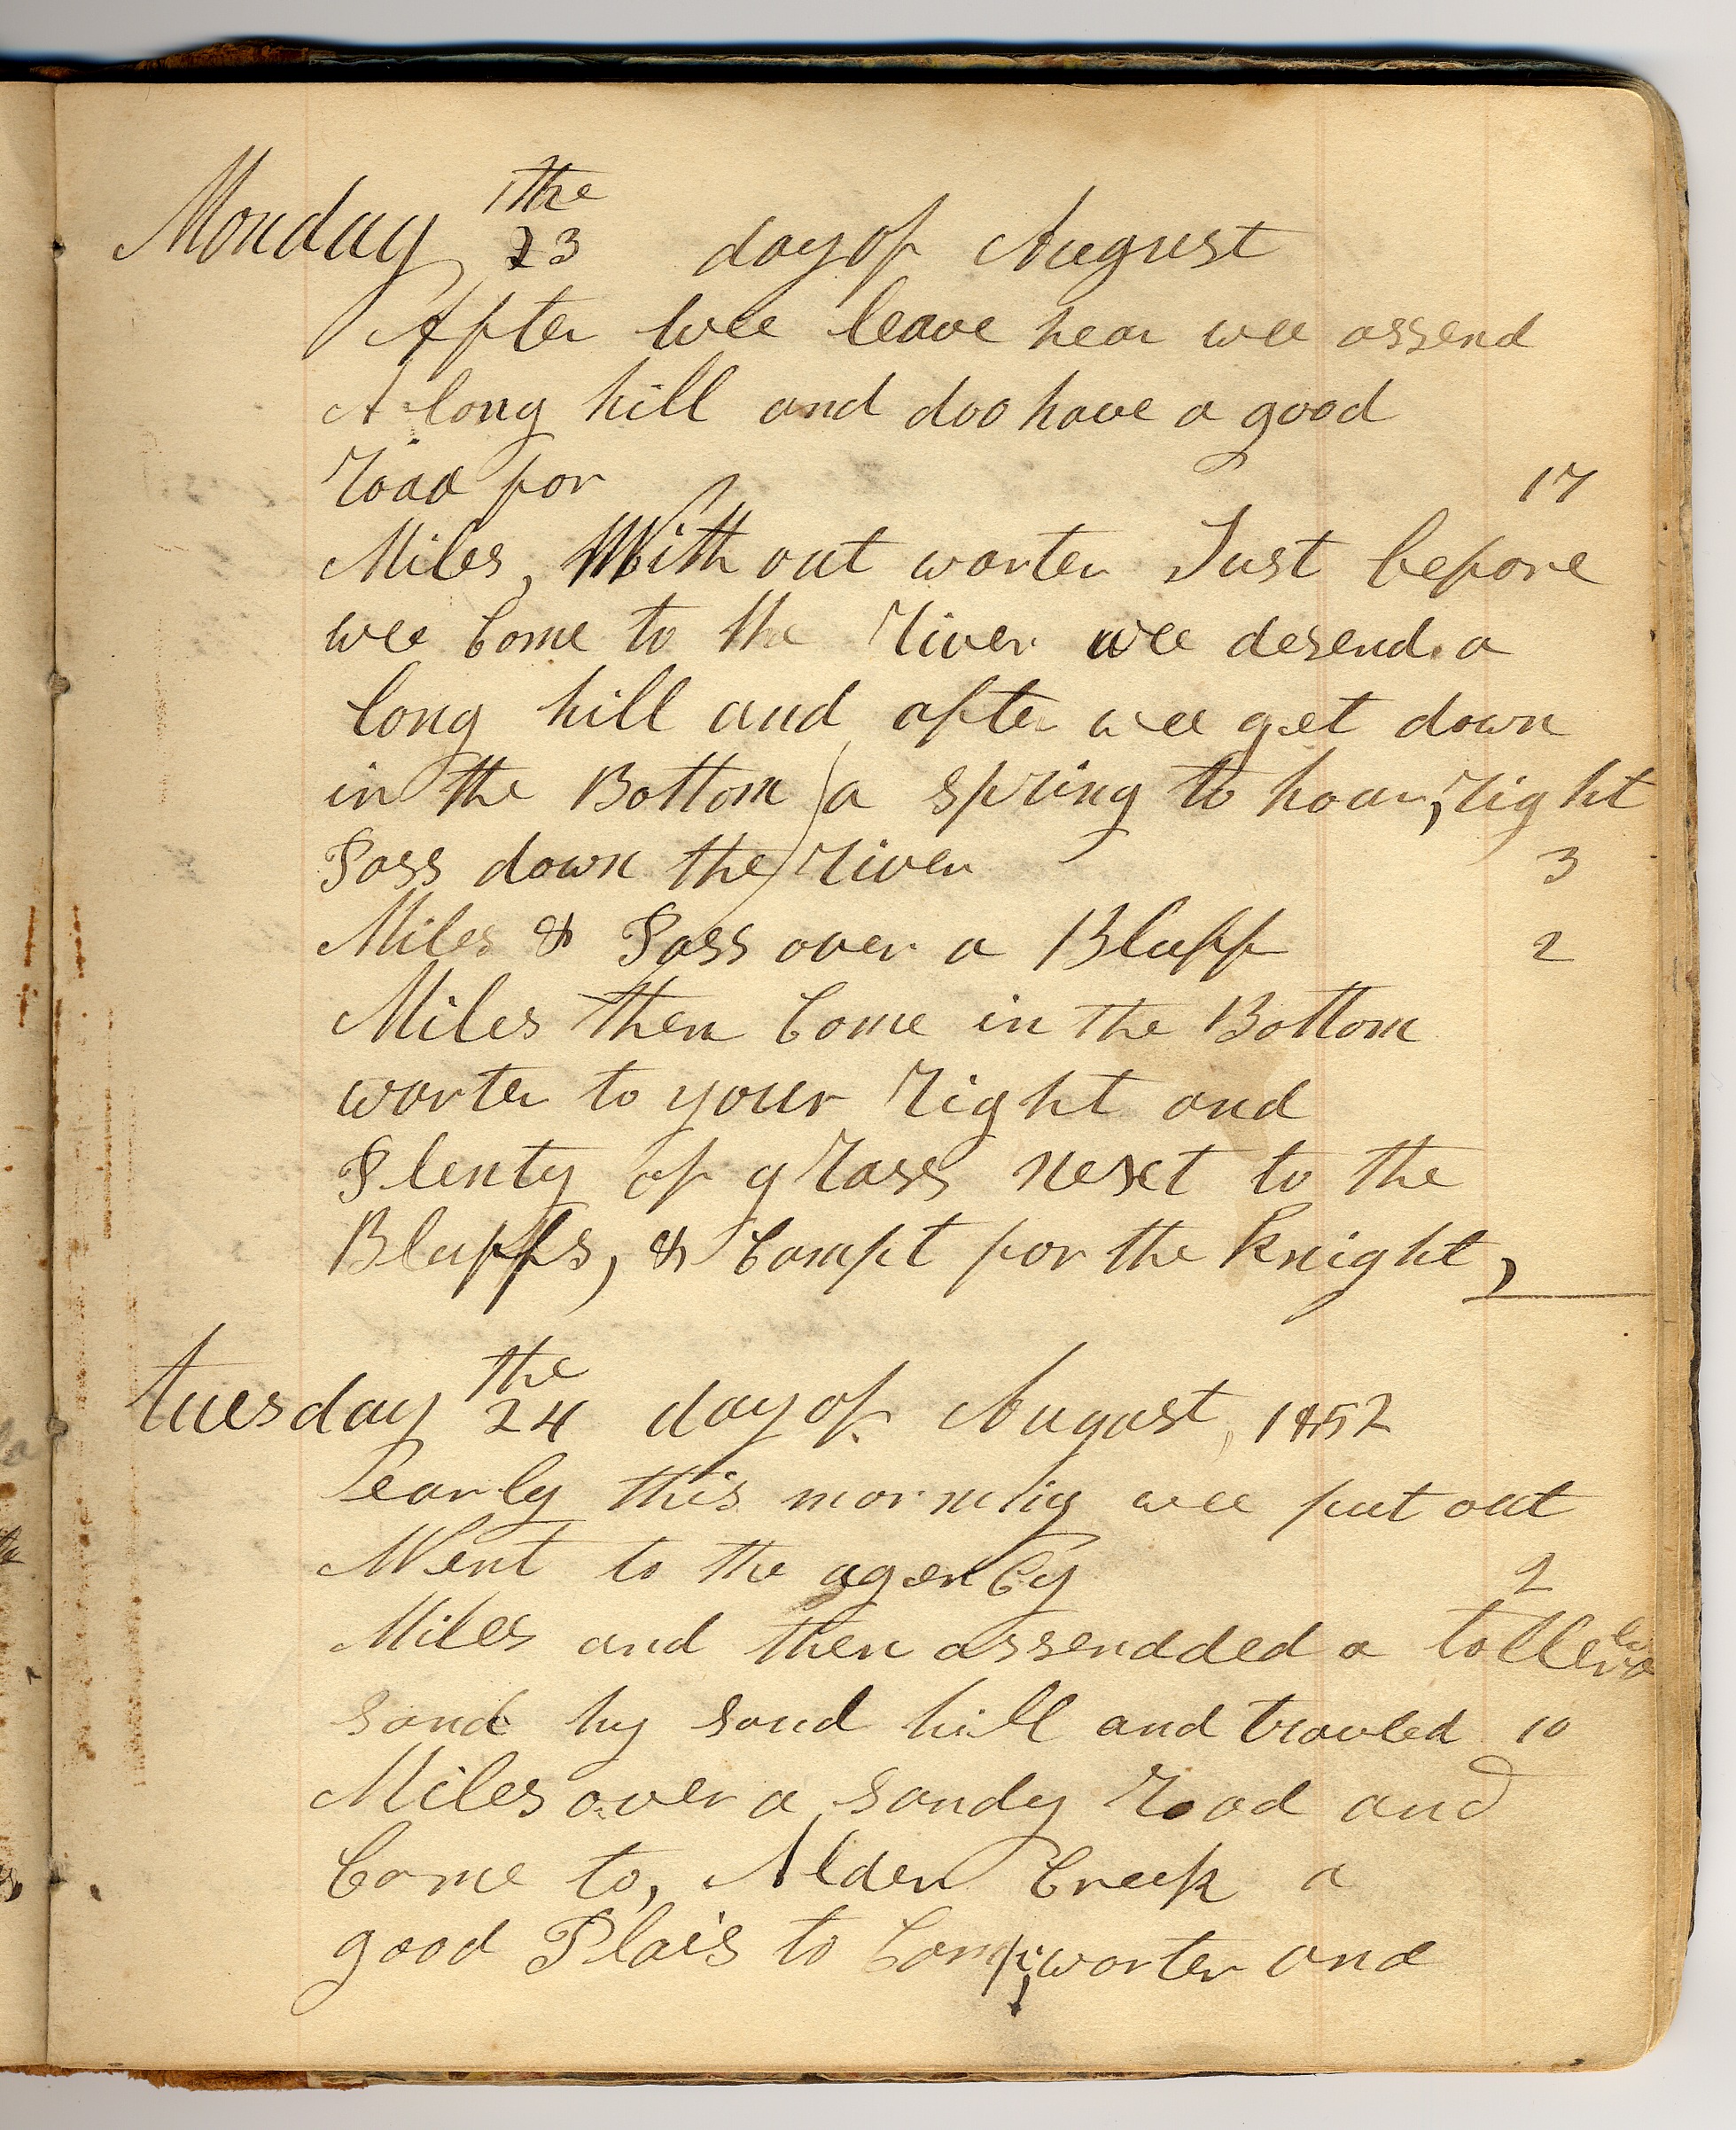 Monday the 23 day of August
After wee leave hear wee assend
A long hill and doo have a good
road for 17
Miles, With out worter Just before
wee Come to the River wee desend a
long hill and after wee get down
in the Bottom (a spring to hour, right
Pass down the) River 3
Miles & Pass over a Bluff 2
Miles then Come in the Bottom
worter to your right and
Plenty of grass next to the
Bluffs, & Campt for the Knight,
tuesday the 24 day of August, 1852
early this morning wee put out
Went to the agenCy 2
Miles and then assendded a
sand hy sand hill and traveled 10
Miles over a sandy Road and
Come to, Alder Creek a
good Plais to Camp, worter and